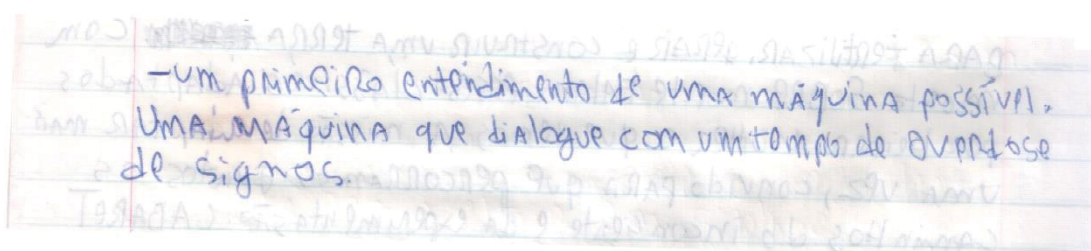 -Um primeiro entendimento de uma máquina possível.
Uma máquina que dialogue com um tempo de overdose
de signos.